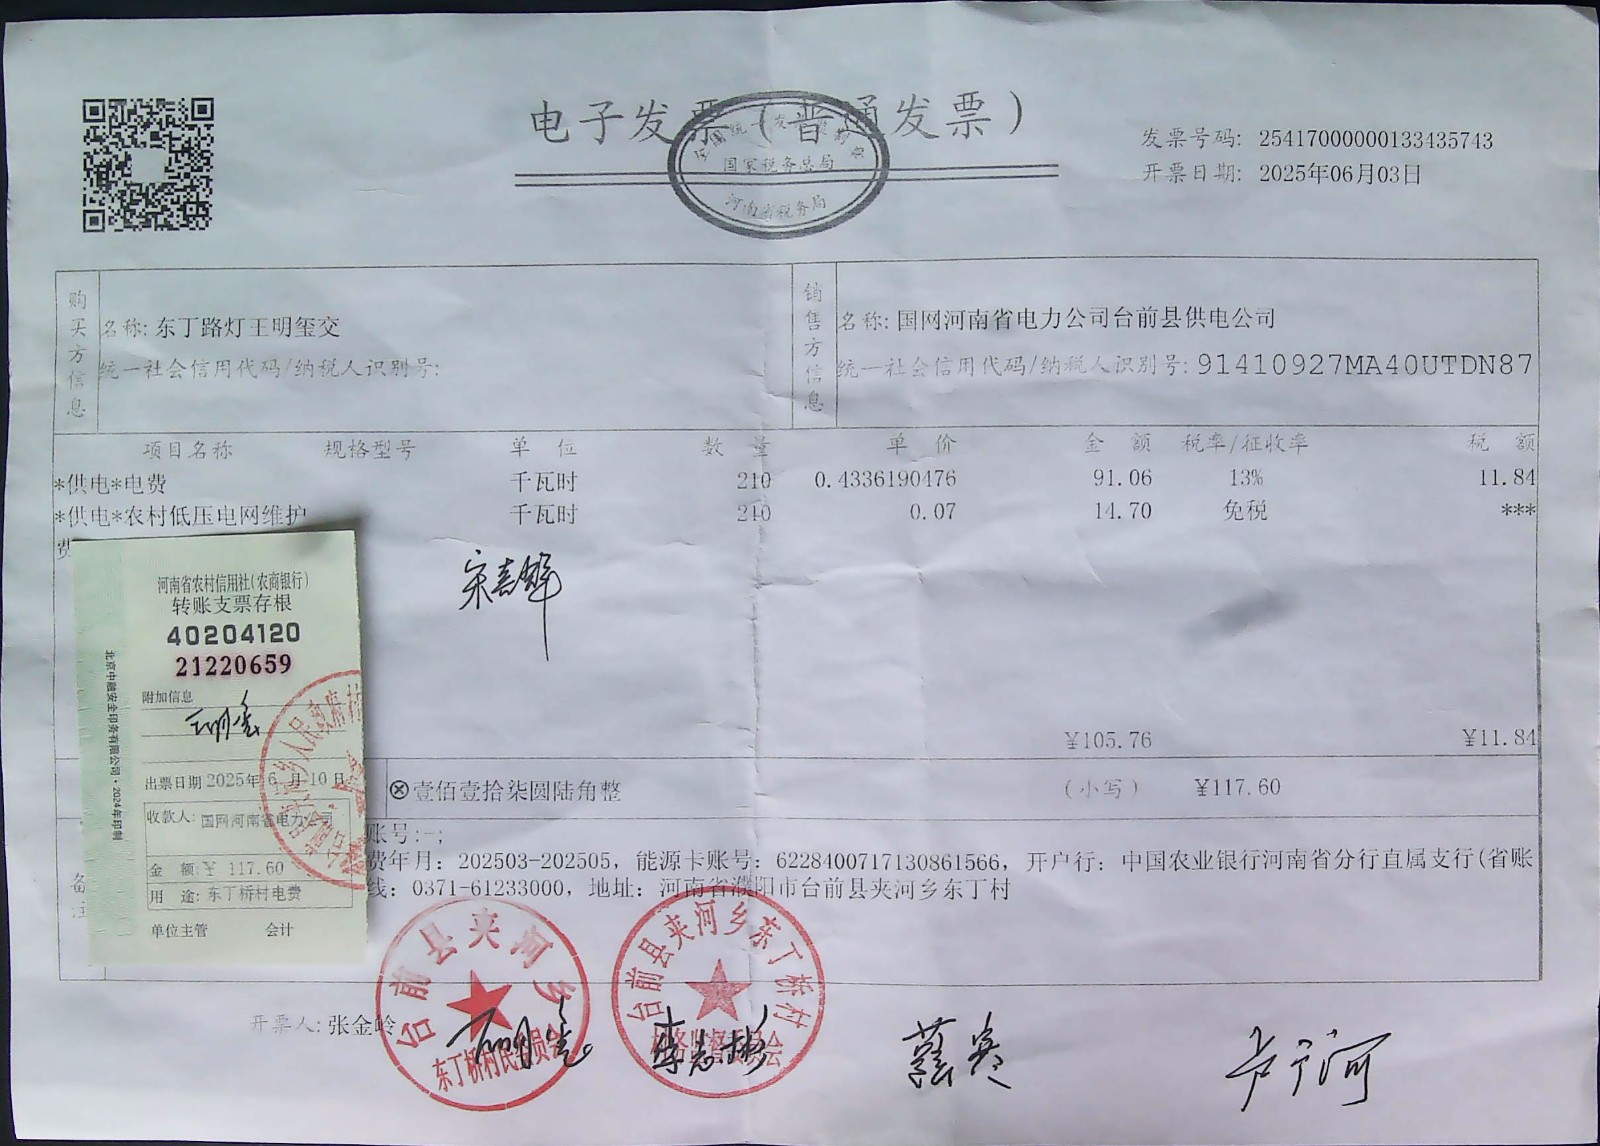 电子发票（普通发票）
全国统一发票监制章
国家税务总局
河南省税务局
发票号码: 25417000000133435743
开票日期: 2025年06月03日
购买方信息
名称: 东丁路灯王明玺交
统一社会信用代码/纳税人识别号:
销售方信息
名称: 国网河南省电力公司台前县供电公司
统一社会信用代码/纳税人识别号: 91410927MA40UTDN87
项目名称 规格型号 单位 数量 单价 金额 税率/征收率 税额
*供电*电费 千瓦时 210 0.4336190476 91.06 13% 11.84
*供电*农村低压电网维护 千瓦时 210 0.07 14.70 免税 ***
费
河南省农村信用社(农商银行)
转账支票存根
40204120
21220659
附加信息
出票日期 2025年 6 月 10 日
收款人: 国网河南省电力公司
金 额: ¥ 117.60
用 途: 东丁桥村电费
单位主管 会计
北京中融安全印务有限公司·2024年印制
¥105.76 ¥11.84
ⓧ壹佰壹拾柒圆陆角整 （小写） ¥117.60
备注
账号:-;
费年月: 202503-202505, 能源卡账号: 6228400717130861566, 开户行: 中国农业银行河南省分行直属支行(省账
线: 0371-61233000, 地址: 河南省濮阳市台前县夹河乡东丁村
开票人: 张金岭
台前县夹河乡
东丁桥村民委员会
台前县夹河乡东丁桥村
李志彬
卢宁河